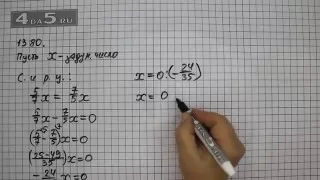 4DA5.RU
1380.
Пусть x-задум. число
С. и р. у.:
5/7 x = 7/5 x
5/7 x - 7/5 x = 0
(5/7 ^5 - 7/5 ^7)x = 0
(25-49/35)x = 0
- 24/35 x = 0
x = 0 : (- 24/35)
x = 0